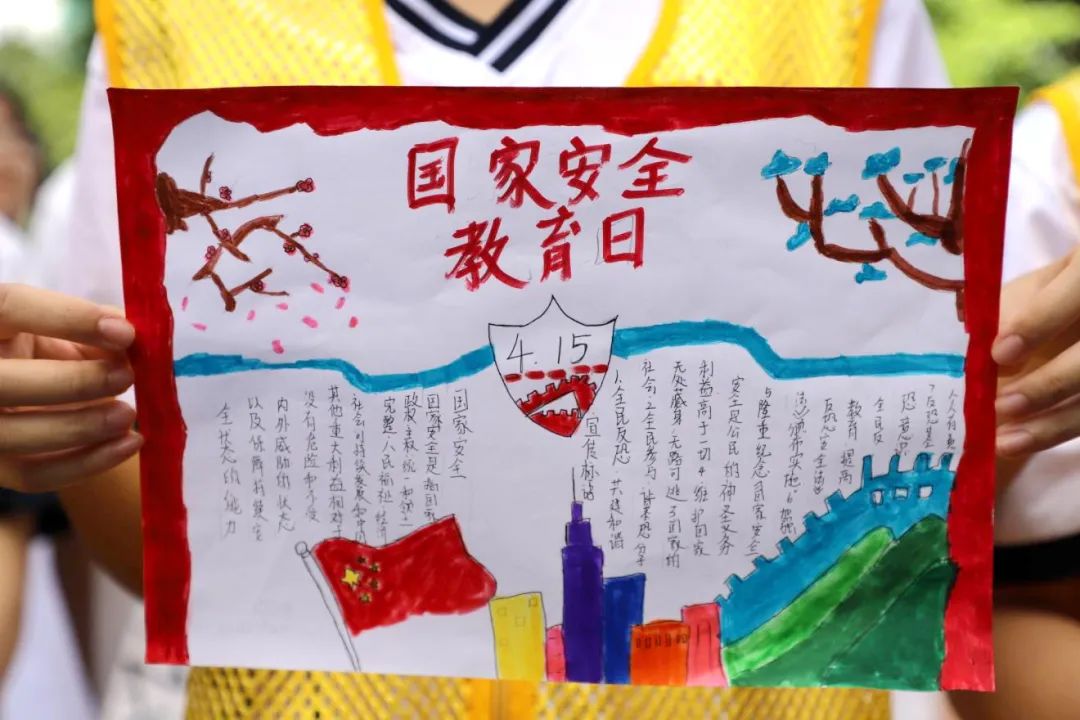 国家安全
教育日
4.15
国家安全
国家安全是指国家
政权、主权、统一和领土
完整、人民福祉、经济
社会可持续发展和
其他重大利益相对
没有危险和不受
内外威胁的状态
以及保障持续安
全状态的能力
宣传标语
1.全民反恐 共建和谐
社会 2.全民参与 让暴恐分子
无处藏身、无路可逃 3.国家的
利益高于一切 4.维护国家
安全是公民的神圣义务
5.隆重纪念《国家安全
法》颁布实施 6.加强
反恐安全法
教育 提高
全民反
恐意识
7.反恐
人人有责